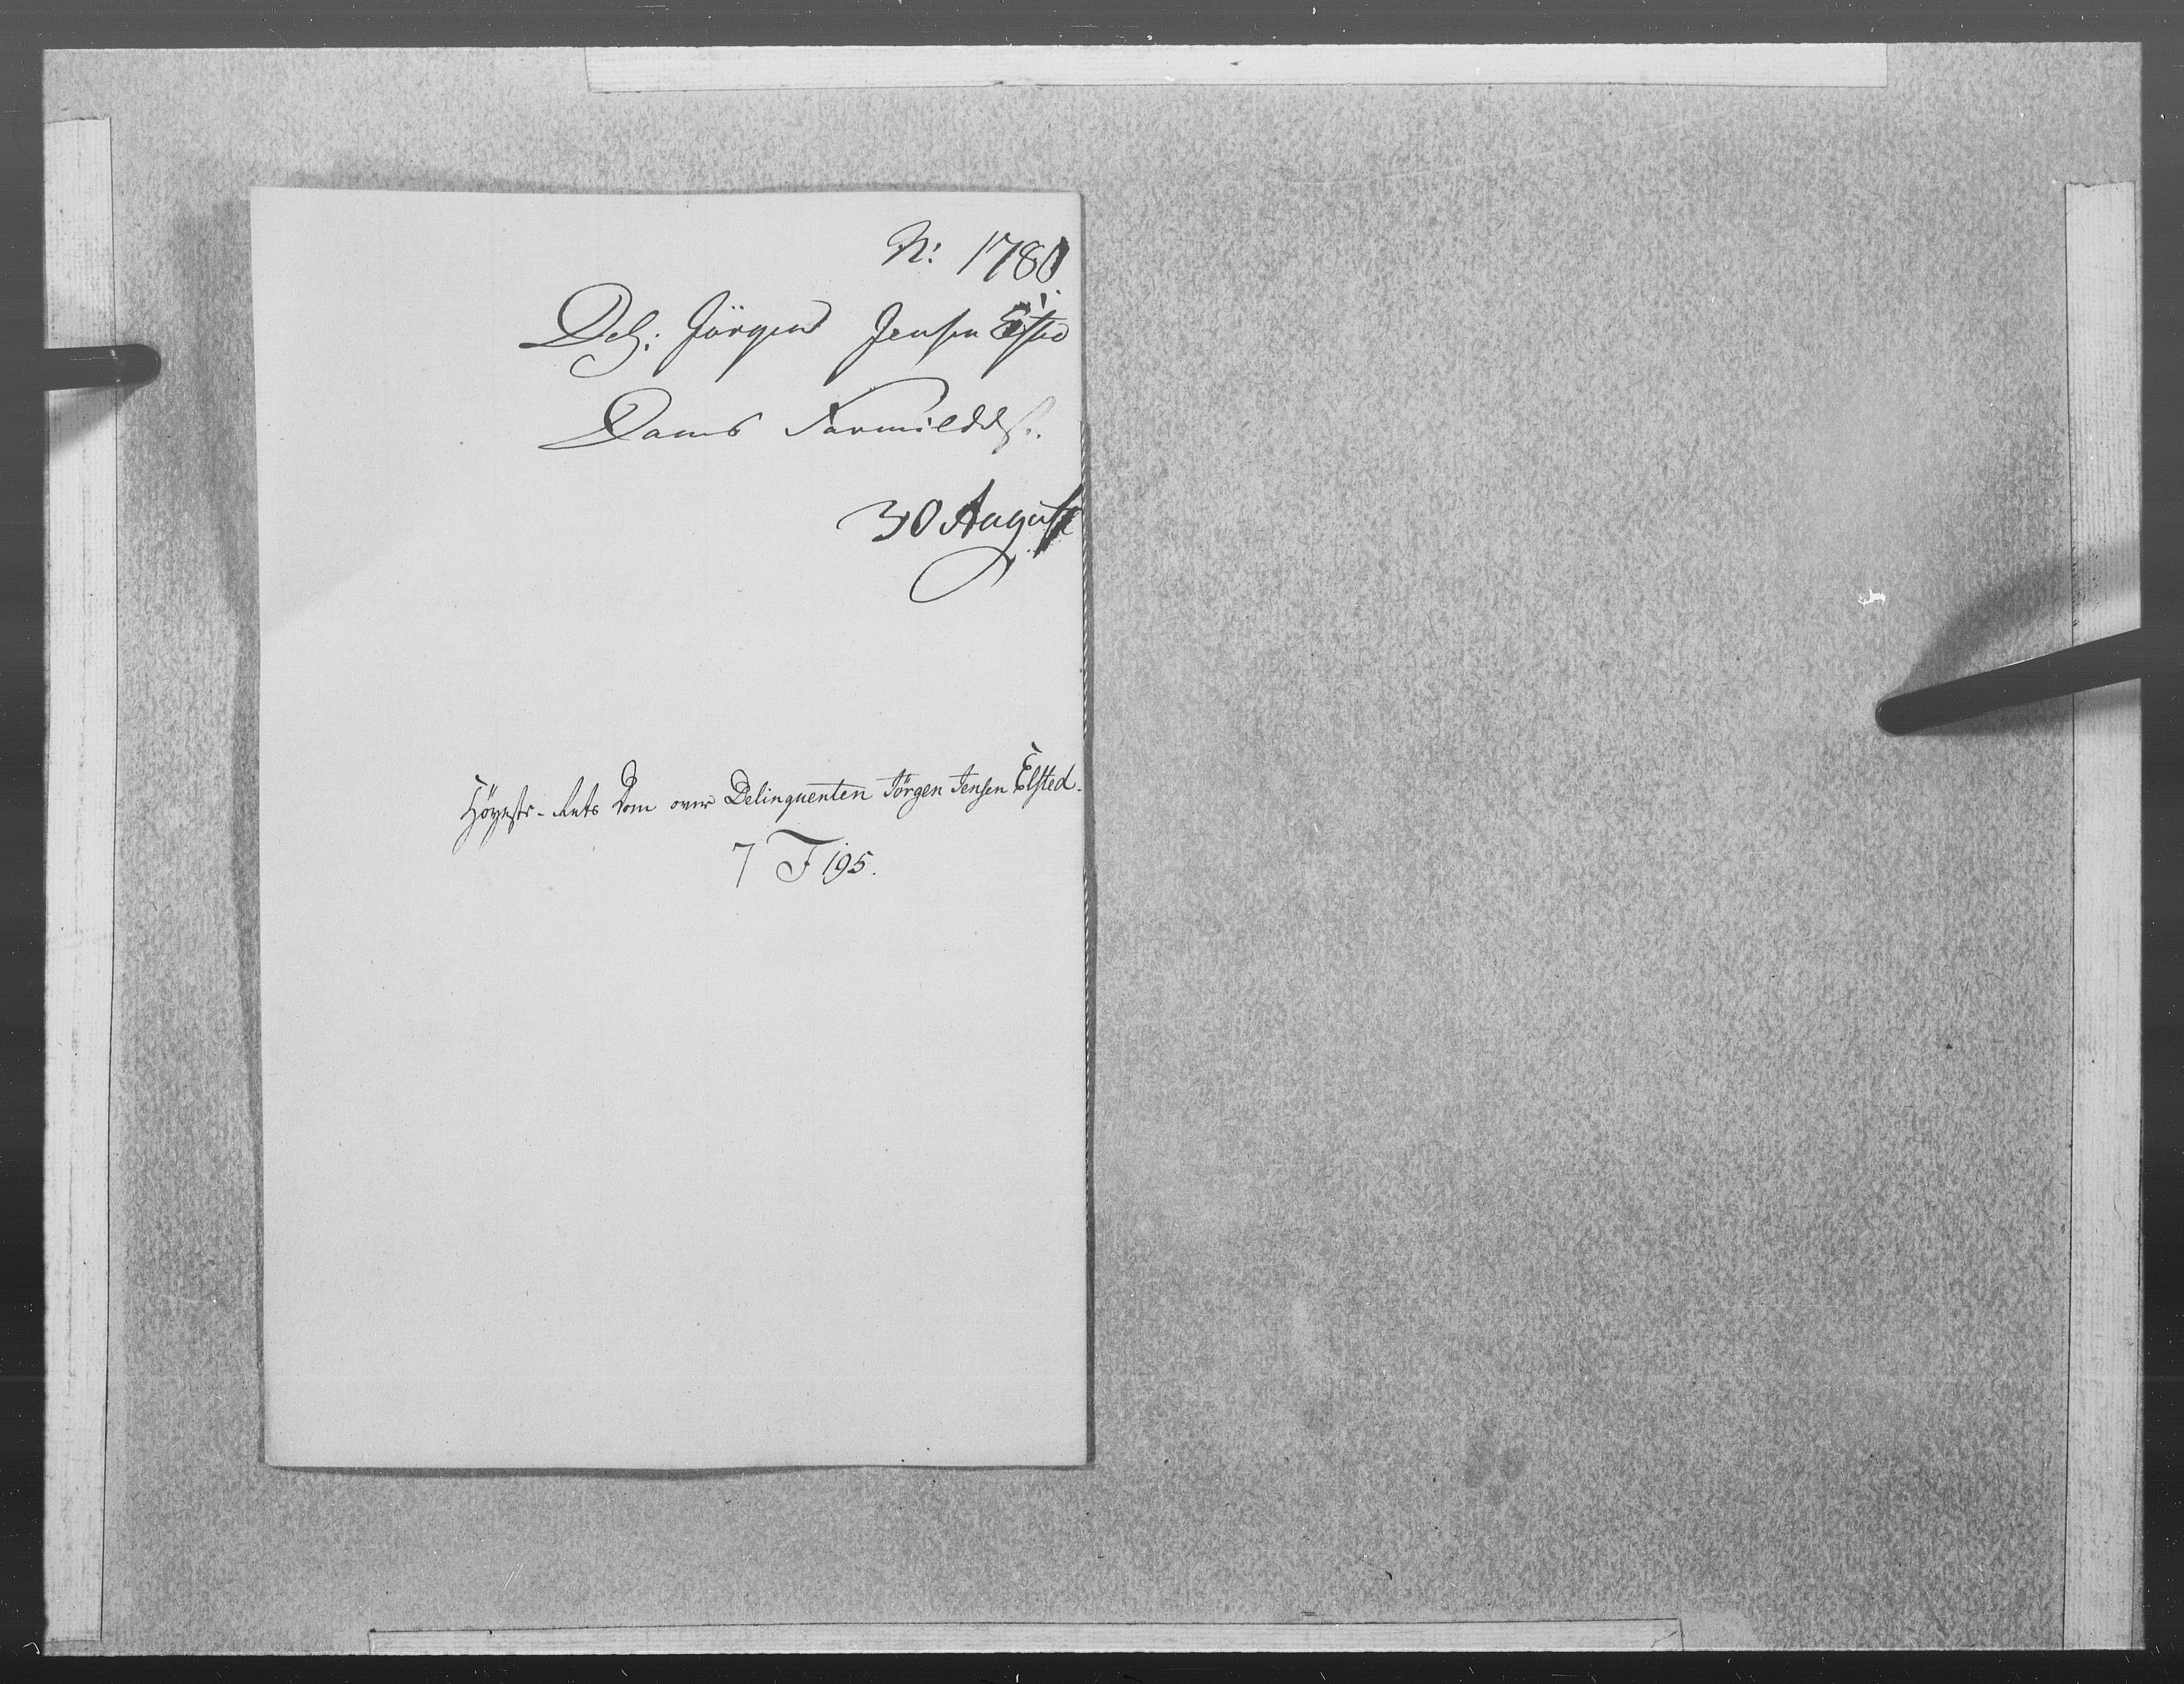 N: 1780
Del: Jörgen Jensen Elsted
Doms Formildels.
30 August
Höyeste-Retts Dom over Delinquenten Jörgen Jensen Elsted.
7 F 195.